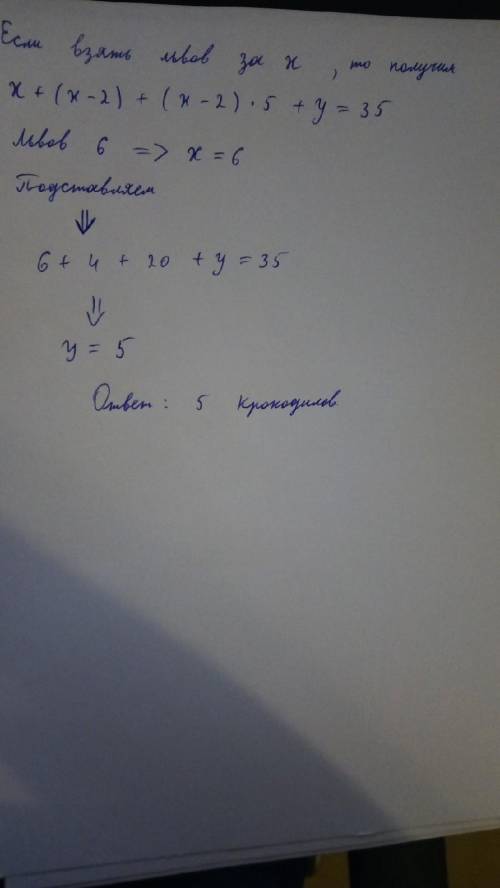 Если взять львов за x, то получим
x + (x-2) + (x-2) · 5 + y = 35
Львов 6 => x = 6
Подставляем
⇓
6 + 4 + 20 + y = 35
⇓
y = 5
Ответ: 5 крокодилов